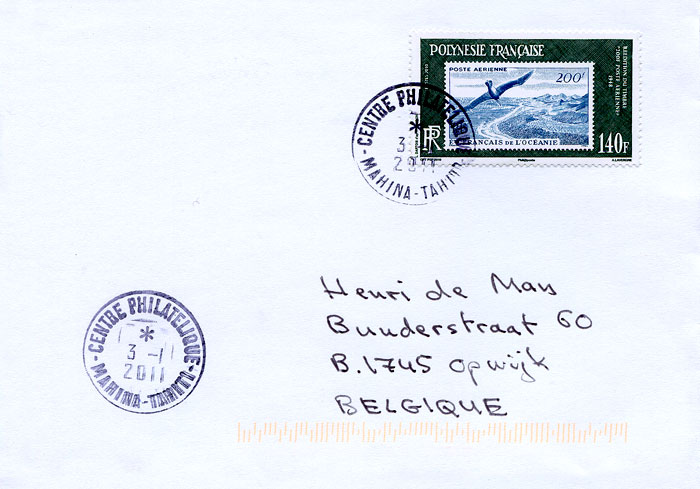 POLYNESIE FRANÇAISE
POSTE AERIENNE
200F
REEDITION DU TIMBRE
"200F POSTE AERIENNE"
1948
FRANÇAIS DE L'OCEANIE
RF
140F
CENTRE PHILATELIQUE
*
3
2011
MAHINA-TAHITI
Henri de Man
Bunderstraat 60
B.1745 Opwijk
BELGIQUE
-CENTRE PHILATELIQUE-
*
3 -1
2011
MAHINA-TAHITI